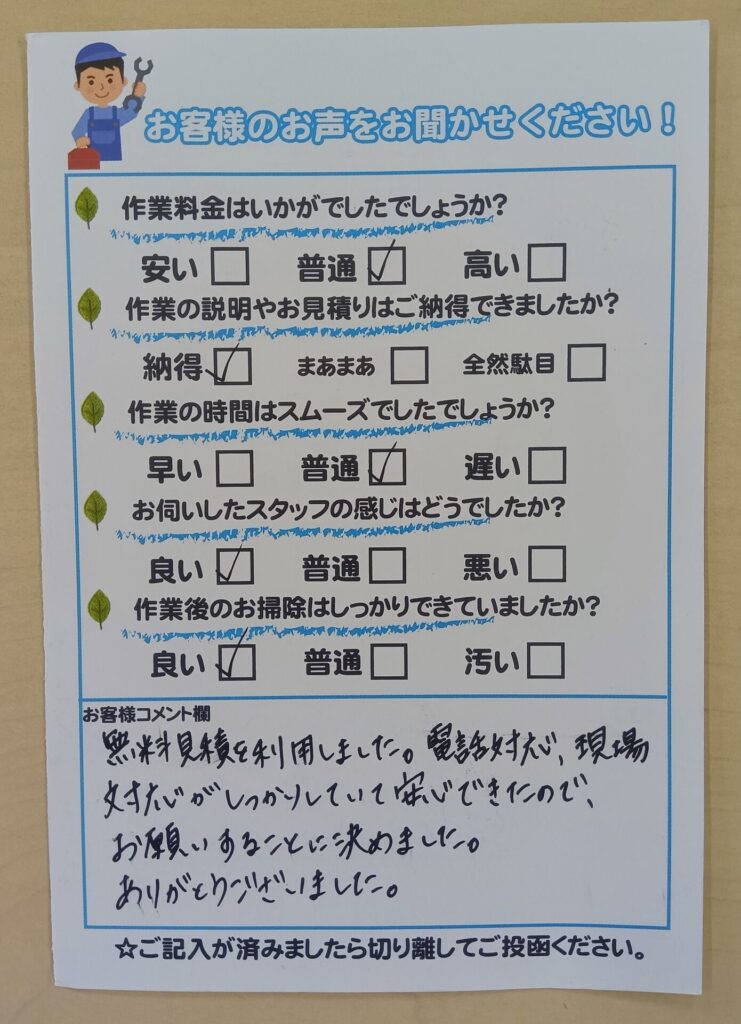 お客様のお声をお聞かせください！
作業料金はいかがでしたでしょうか?
安い□ 普通☑ 高い□
作業の説明やお見積りはご納得できましたか?
納得☑ まあまあ□ 全然駄目□
作業の時間はスムーズでしたでしょうか?
早い□ 普通☑ 遅い□
お伺いしたスタッフの感じはどうでしたか?
良い☑ 普通□ 悪い□
作業後のお掃除はしっかりできていましたか?
良い☑ 普通□ 汚い□
お客様コメント欄
無料見積を利用しました。電話対応、現場
対応がしっかりしていて安心できたので、
お願いすることに決めました。
ありがとうございました。
☆ご記入が済みましたら切り離してご投函ください。